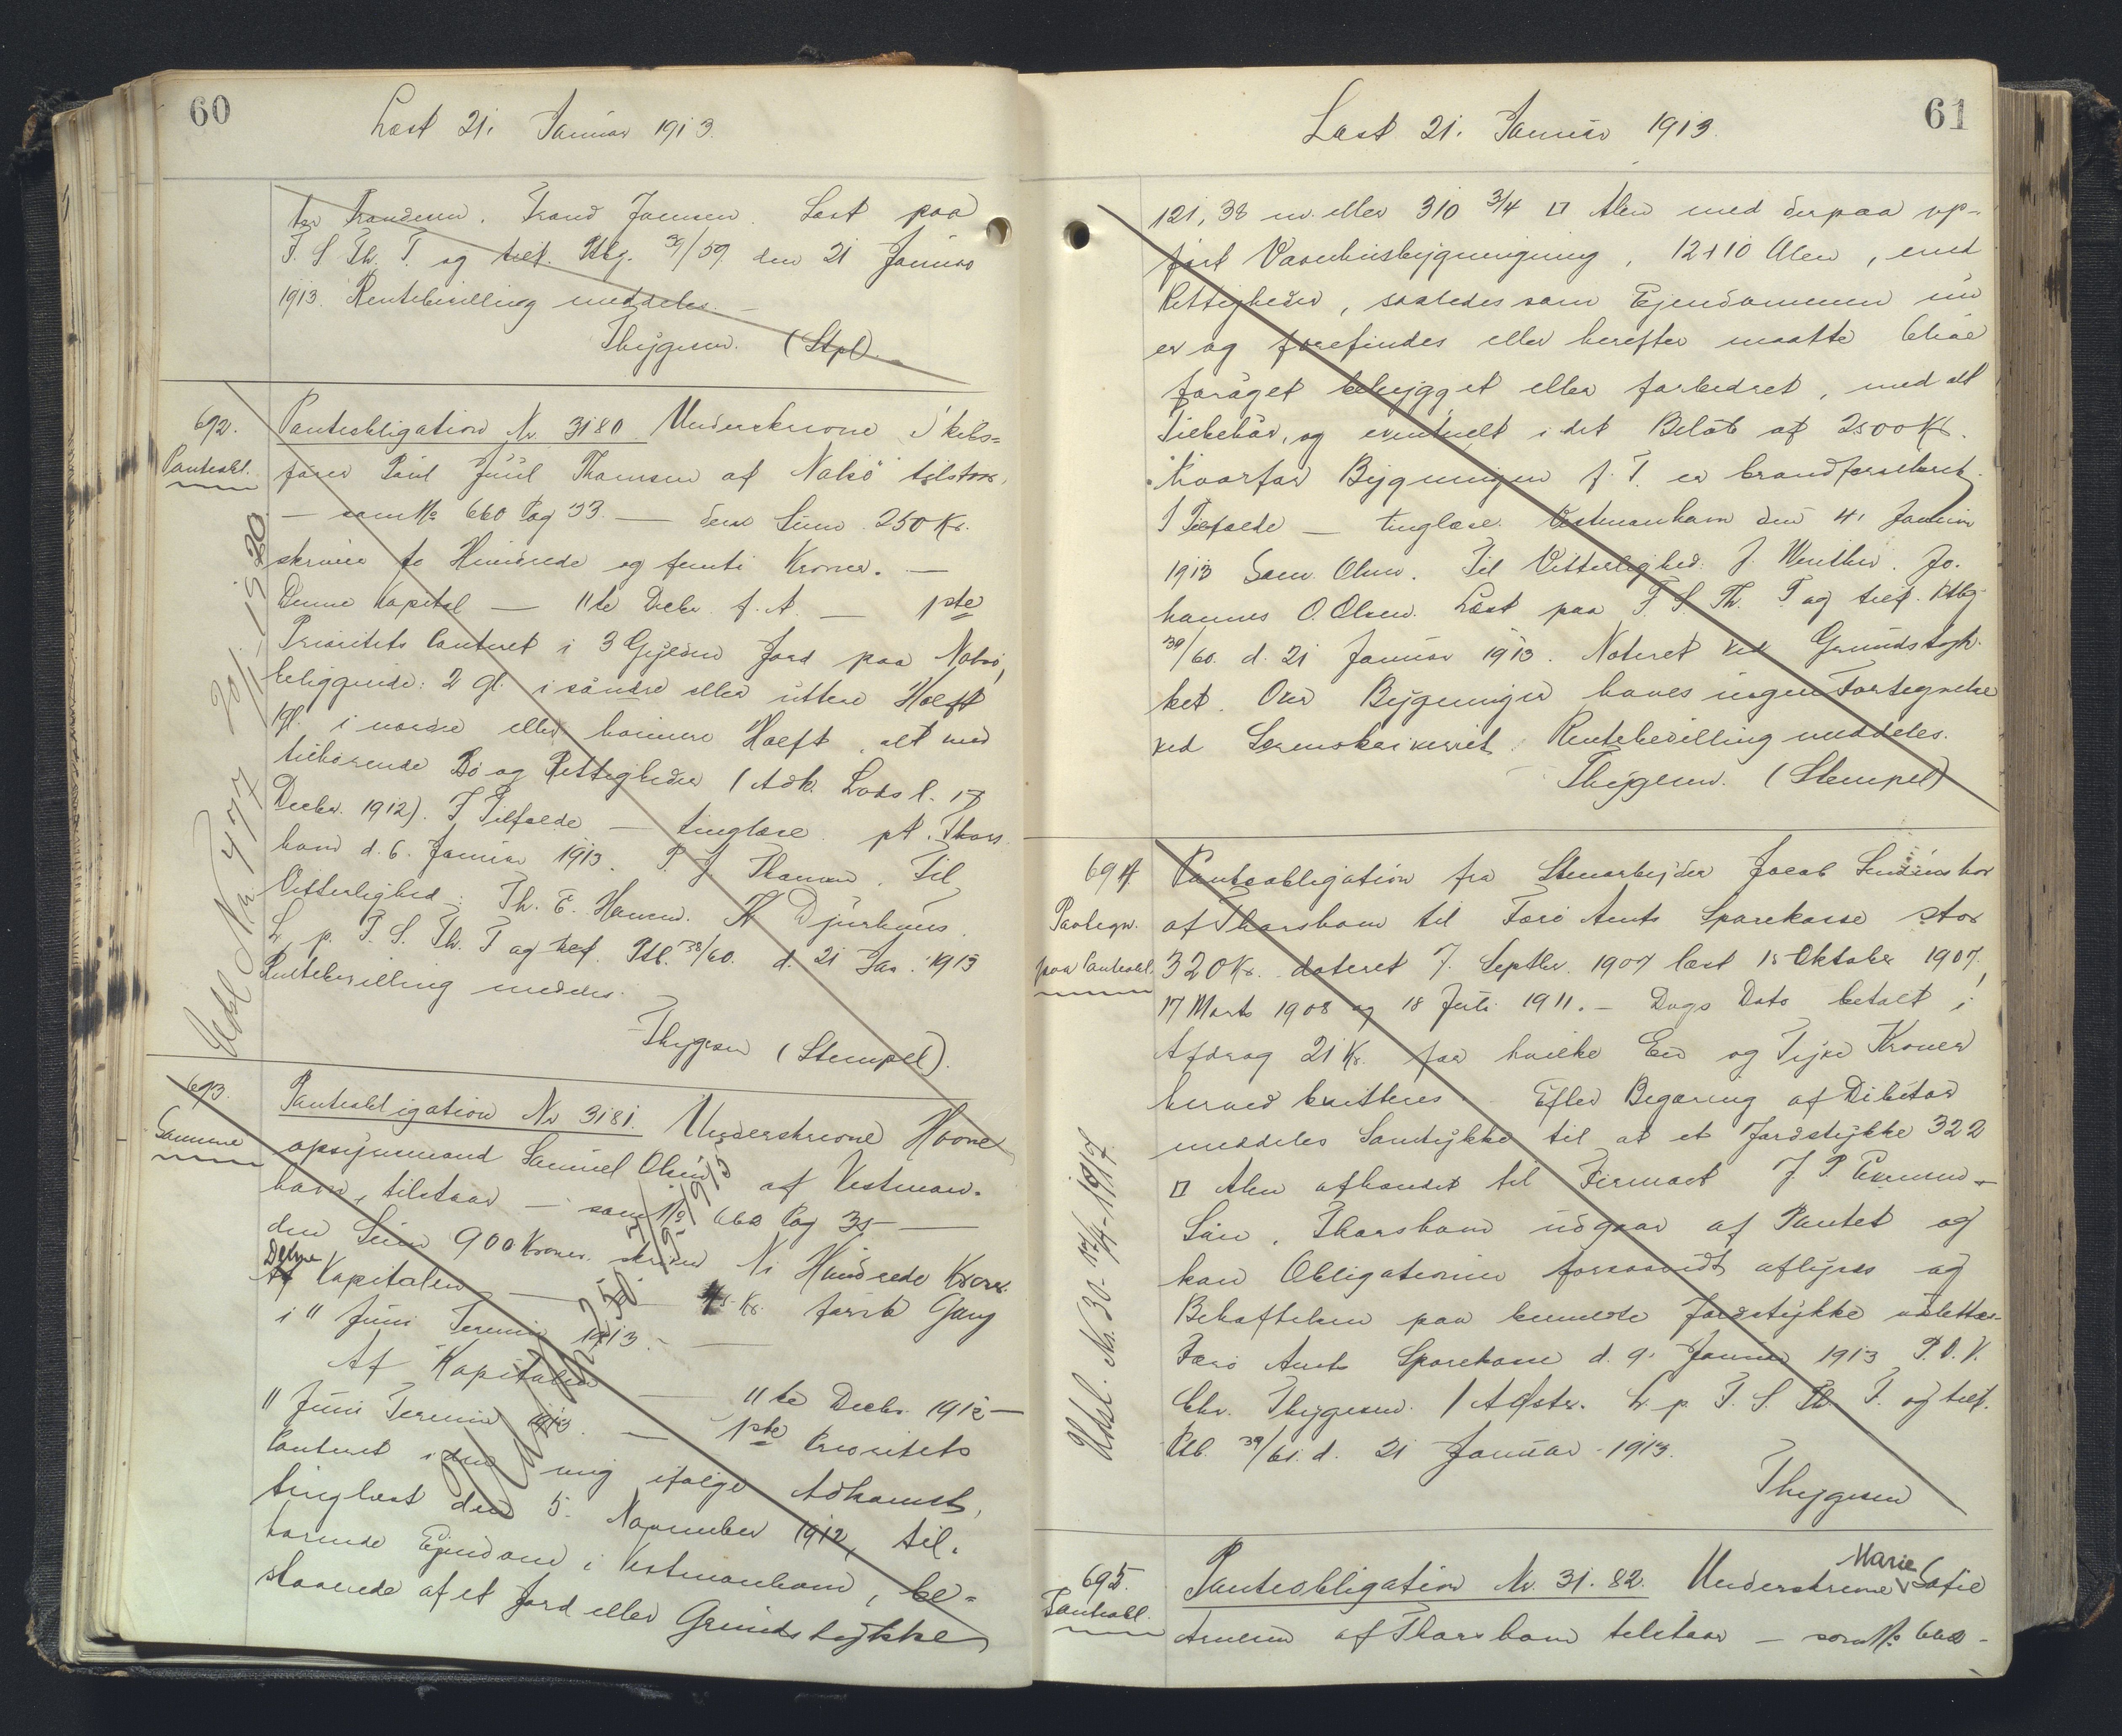 60
Læst 21. Januar 1913.
ter Trondesen. Trond Jensen. Læst paa
F. S. Th. T. og tilf. Ptbg. 39/59 den 21 Januar
1913. Rentebevilling meddeles. —
Thygesen. (Stpl).
692. Panteobligation Nr. 3180. Underskrevne Skibs=
Panteobl. fører Poul Juul Thomsen af Nolsö tilstaar,
— som No 660 Pag 33. — den Sum 250 Kr.
skriver to Hundrede og femti Kroner. —
Denne Kapital — 11te Decbr. f. A. — 1ste
Prioritets Panteret i 3 Gylden Jord paa Nolsö,
beliggende: 2 gl. i söndre eller uttere Hælft
1 gl. i nordre eller heimere Hælft, alt med
tilhørende Bö og Rettigheder (Adk. Lods l. 17
Decbr. 1912). I Tilfælde — tinglæse. pt. Thors
havn d. 6. Januar 1913. P. J. Thomsen. Til
Vitterlighed: Th. E. Hansen. Djurhuus.
L. p. F. S. Th. T og tilf. Ptb. 39/60. d. 21 Jan. 1913
Rentebevilling meddeles.
Thygesen (Stempel).
Udsl Nr. 477 20/11 - 1920.
693. Panteobligation Nr 3181. Underskrevne Havne
Samme opsynsmand Samuel Olsen af Vestman-
havn, tilstaar — som No 660 Pag 35 —
den Sum 900 Kroner skriver Ni Hundrede Kroner.
Denne
Af Kapitalen — 45 Kr. første Gang
i 11 Juni Termin 1913. —
Af Kapitalen — 11te Decbr. 1912 —
11 Juni Termin 1913. — 1ste Prioritets
Panteret i den mig ifølge Adkomst,
tinglæst den 5. November 1912, til-
hørende Ejendom i Vestmanhavn, be=
staaende af et Jord eller Grundstykke
61
Læst 21. Januar 1913.
121,38 m. eller 310 3/4 □ Alen med derpaa op-
ført Vaanhusbygningning, 12 x 10 Alen, med
Rettigheder, saaledes som Ejendommen nu
er og forefindes eller herefter maatte blive
forøget bebygget eller forbedret, med alt
Tilbehør, og eventuelt i det Beløb af 2500 Kr.
hvorfor Bygningen f. T. er brandforsikret.
I Tilfælde — tinglæse. Vestmanhavn den 4. Januar
1913 Sam. Olsen. Til Vitterlighed: J. Winther. Jo-
hannes O. Olsen. Læst paa F. S. Th. T og tilf. Ptbg.
39/60. d. 21 Januar 1913. Noteret ved Grundstyk-
ket. Over Bygninger haves ingen Fortegnelse
ved Sorenskriveriet. Rentebevilling meddeles.
Thygesen. (Stempel)
694. Panteobligation fra Stenarbejder Jacob
Paategn. af Thorshavn til Færø Amts Sparekasse stor
paa Panteobl. 320 Kr. dateret 7. Septbr. 1907 læst 15 Oktober 1907,
17 Marts 1908 og 18 Juli 1911. — Dags Dato betalt i
Afdrag 21 Kr. for hvilke En og Tyve Kroner
herved kvitteres. Efter Begæring af Debitor
meddeles Samtykke til at et Jordstykke 322
□ Alen afhændet til Firmaet J. P. Evensen
Sön, Thorshavn udgaar af Pantet og
kan Obligationen forsaavidt aflyses og
Behæftelsen paa benævnte Jordstykke udslettes.
Færø Amts Sparekasse d. 9. Januar 1913 P. D. V.
Chr. Thygesen. L. p. F. S. Th. T. og tilf.
Ptb. 39/61. d. 21 Januar 1913.
Thygesen
Udsl. Nr. 30 - 17/4 - 1917.
695. Panteobligation Nr. 31.82. Underskrevne Marie Sofie
Panteobl. af Thorshavn tilstaar — som No 660 —